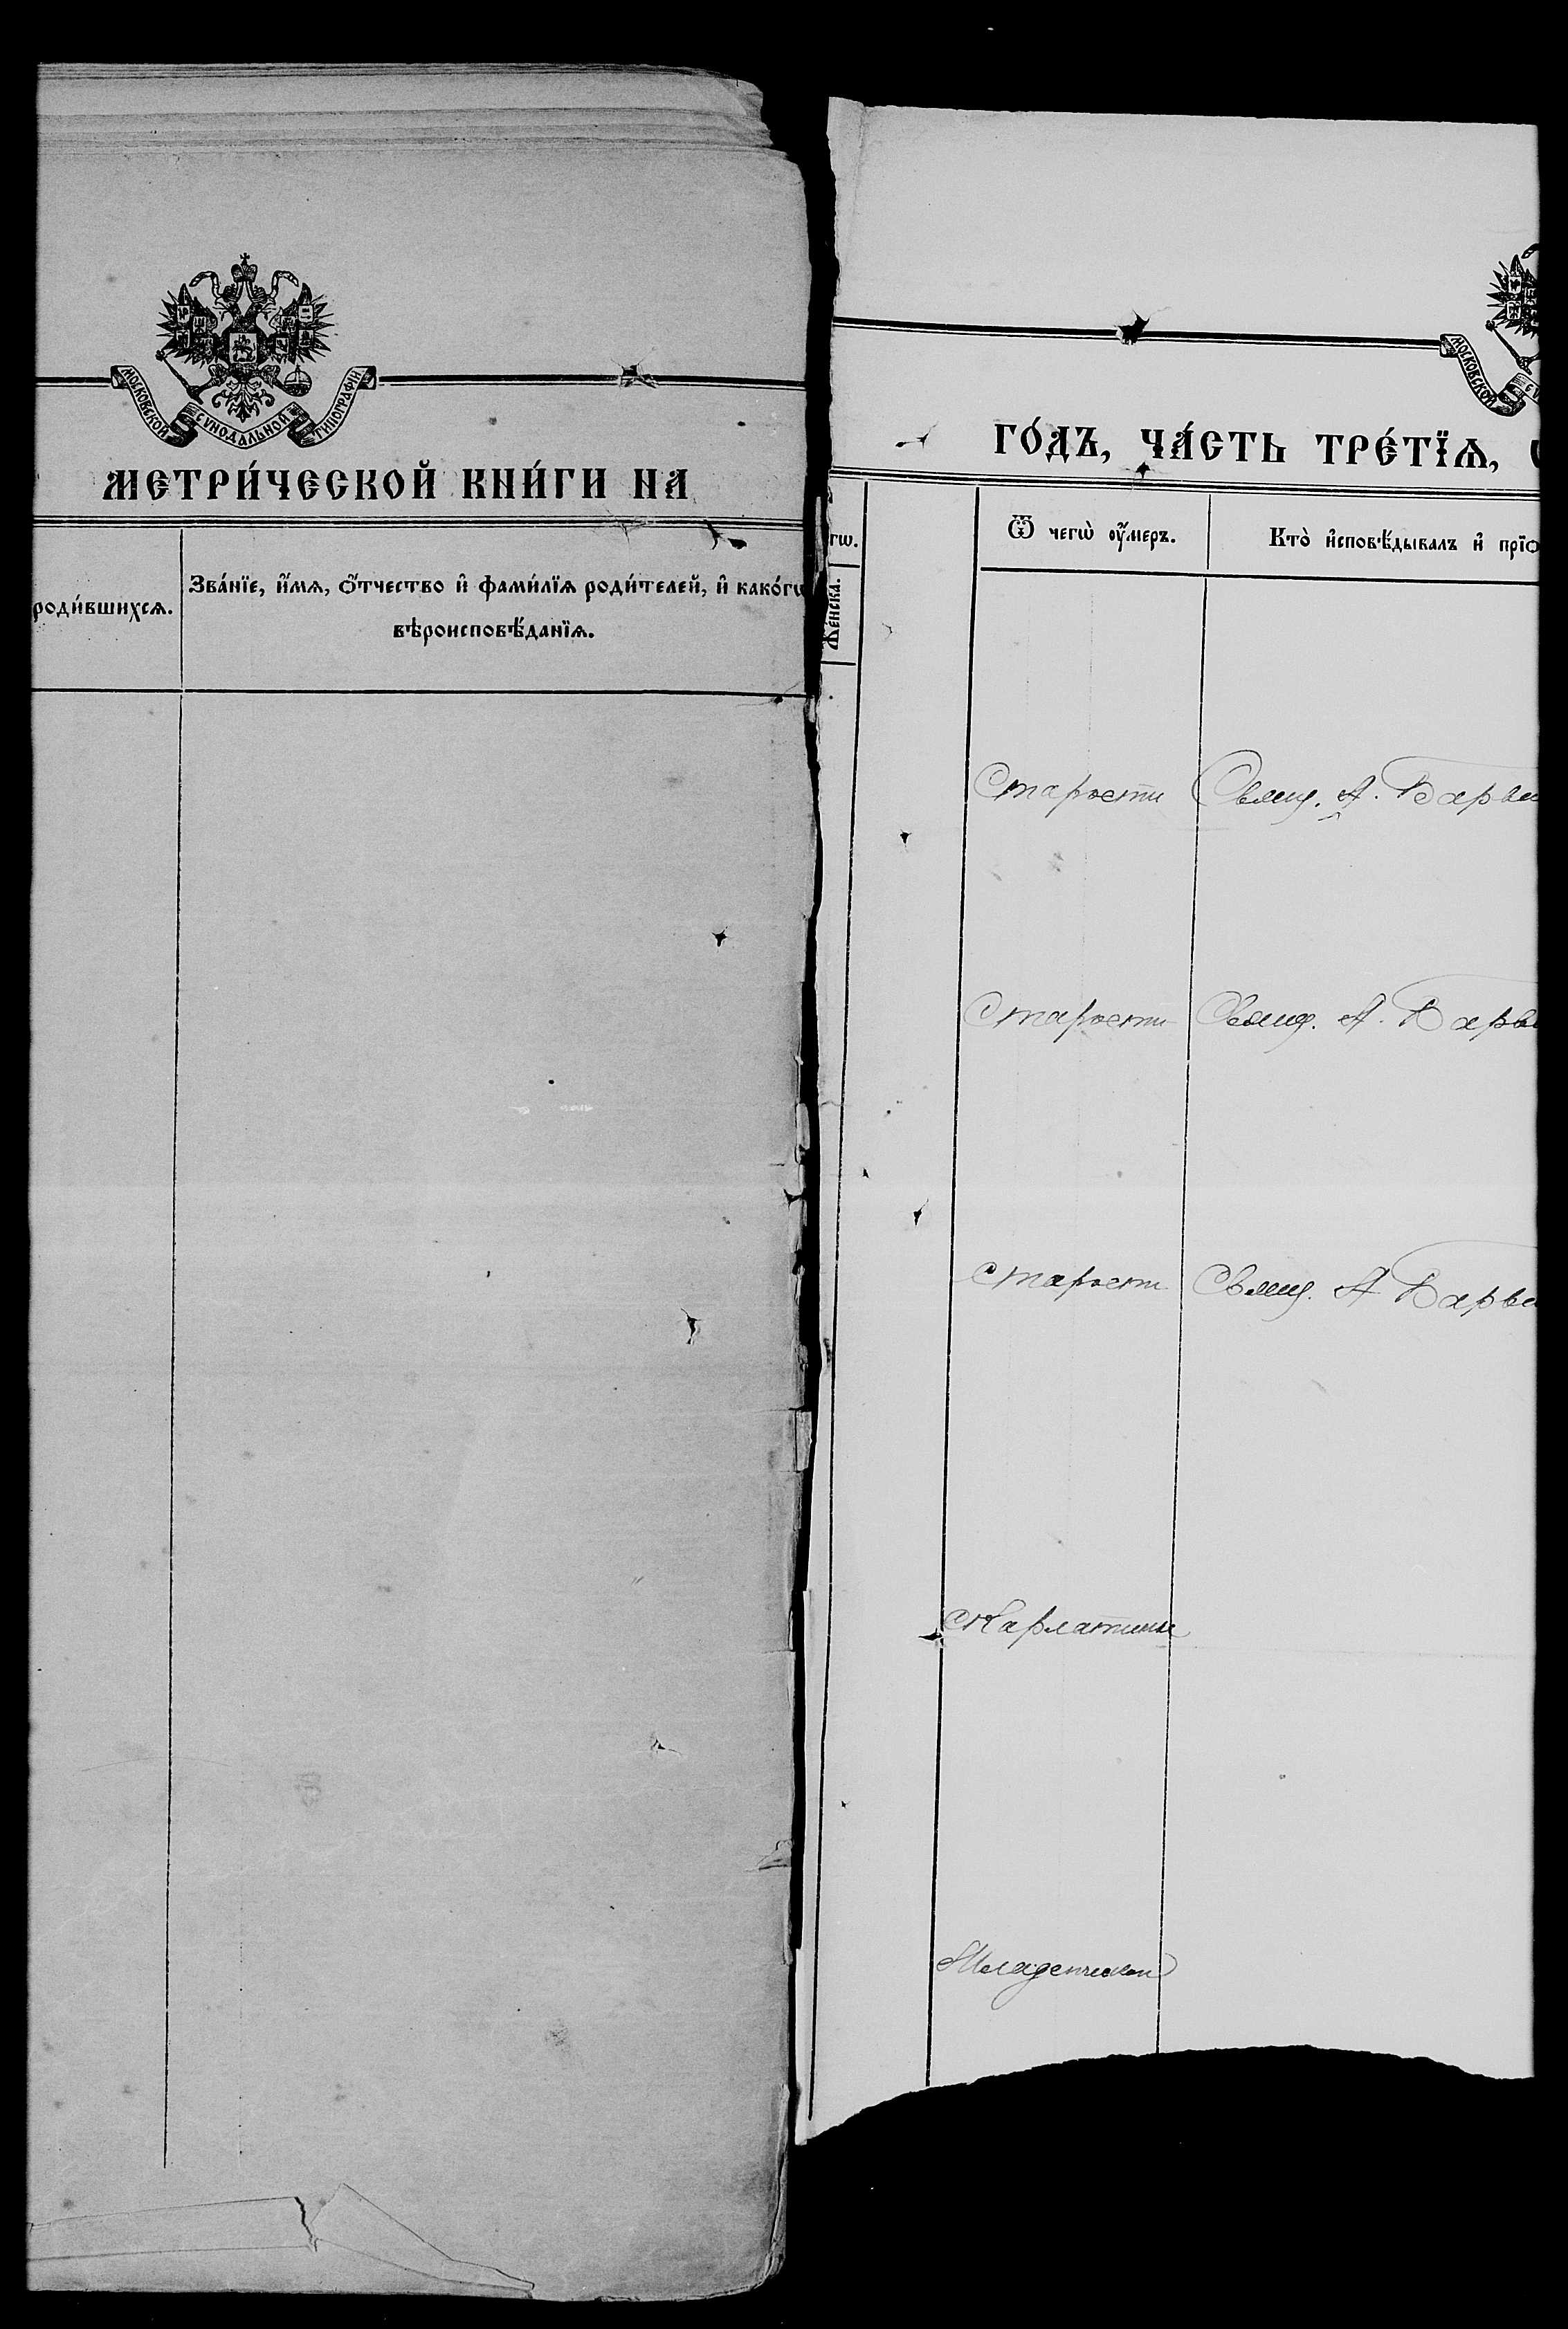 МОСКОВСКОЙ СѴНОДАЛЬНОЙ ТИПОГРАФІИ
МЕТРИ́ЧЕСКОЙ КНИ́ГИ НА
роди́вшихсѧ.
Зва́нїе, и҆́мѧ, ѻ҆́тчество и҆ фами́лїѧ роди́телей, и҆ како́гѡ
вѣроисповѣ́данїѧ.
МОСКОВСКОЙ
ГО́ДЪ, ЧА́СТЬ ТРЕ́ТЇѦ,
гѡ.
Же́нска.
Ѿ чегѡ̀ ᲂу҆́меръ.
Кто̀ и҆сповѣ́дывалъ и҆ прїо
Старости
Свящ. А. Барви
Старости
Свящ. А. Барви
Старости
Свящ. А Барви
Скарлатины
Младенческой